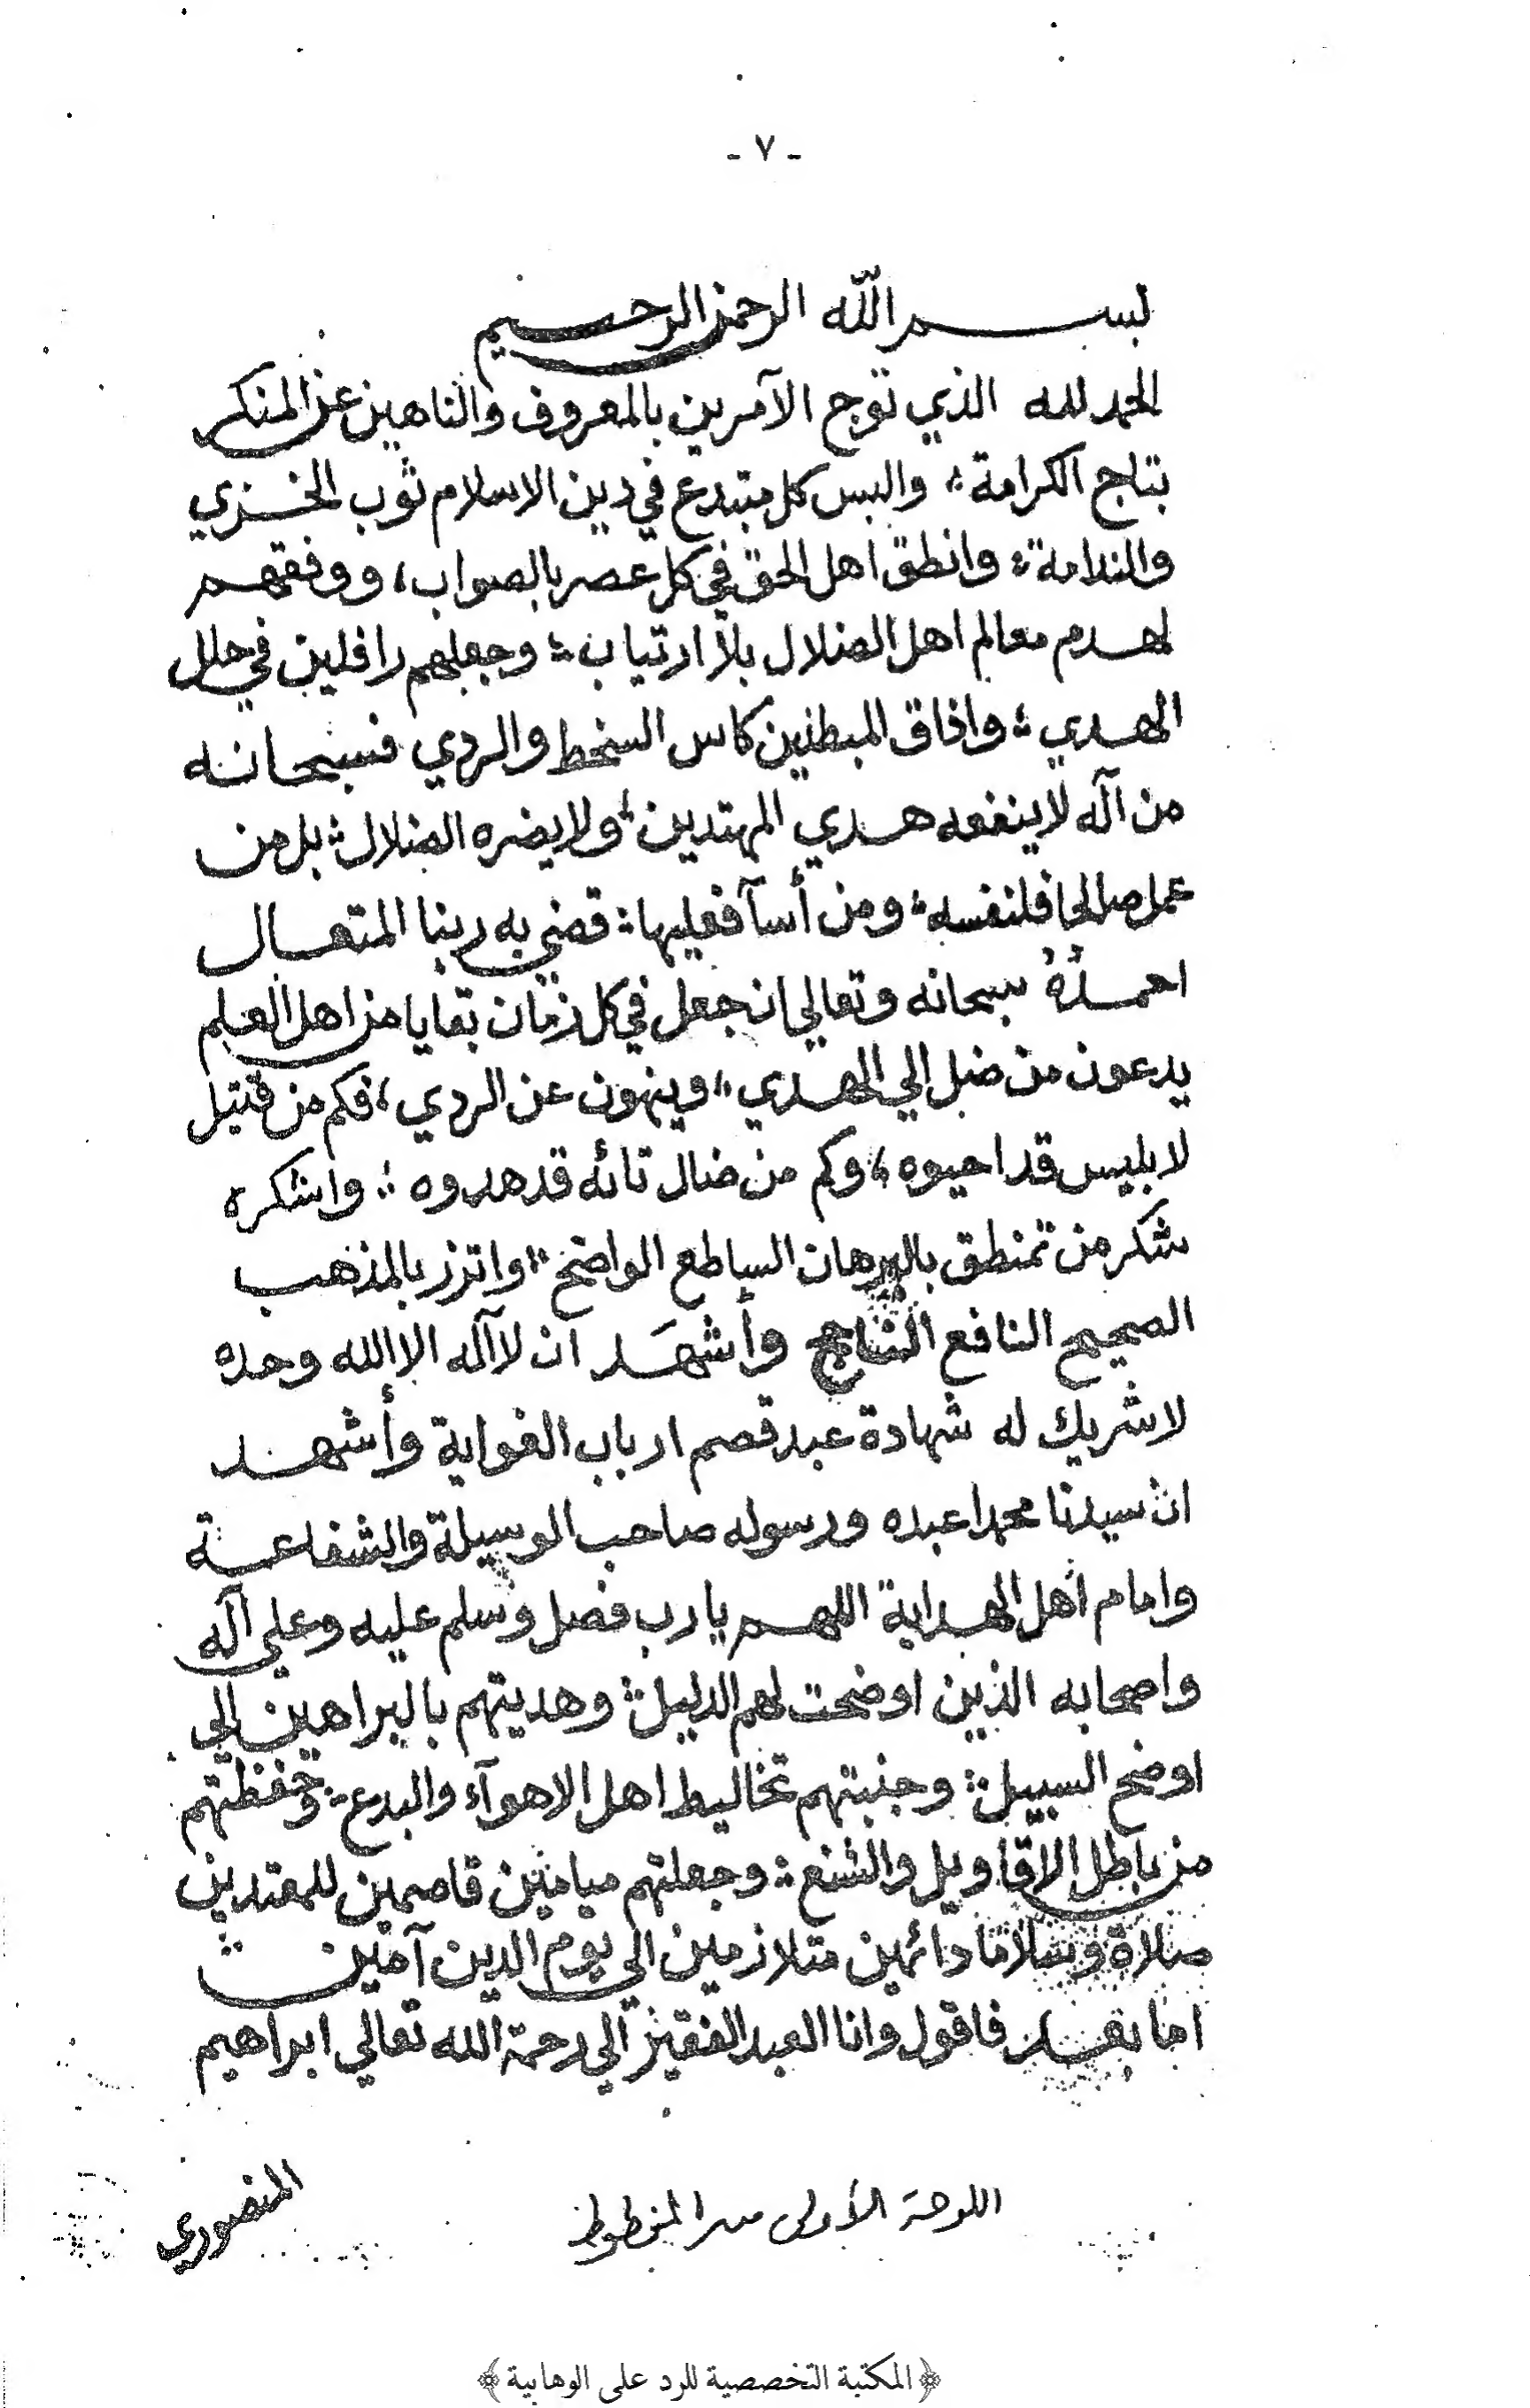 - ٧ -
بسم الله الرحمن الرحيم
الحمد لله الذي توج الآمرين بالمعروف والناهين عن المنكر
بتاج الكرامة؛ والبس كل مبتدع في دين الاسلام ثوب الخزي
والندامة؛ وانطق اهل الحق في كل عصر بالصواب، ووفقهم
لهدم معالم اهل الضلال بلا ارتياب؛ وجعلهم رافلين في حلل
الهدي؛ واذاق المبطلين كاس السخط والردي فسبحانه
من آله لا ينفعه هدي المهتدين؛ ولا يضره الضلال؛ بل من
عمل صالحا فلنفسه؛ ومن أسآ فعليها؛ قضي به ربنا المتعال
احمدُهُ سبحانه وتعالي ان جعل في كل زمان بقايا من اهل العلم
يدعون من ضل الي الهدي، وينهون عن الردي، فكم من قتيل
لابليس قد احيوه، وكم من ضال تائه قد هدوه؛ واشكره
شكر من تمنطق بالبرهان الساطع الواضح، واتزر بالمذهب
الصحيح النافع الناجح وأشهَد ان لا آله الا الله وحده
لا شريك له شهادة عبد قصم ارباب الغواية وأشهد
ان سيدنا محمدا عبده ورسوله صاحب الوسيلة والشفاعة
وامام اهل الهداية اللهم يا رب فصل وسلم عليه وعلي آله
واصحابه الذين اوضحت لهم الدليل؛ وهديتهم بالبراهين الي
اوضح السبيل؛ وجنبتهم تخاليط اهل الاهوآء والبدع؛ وحفظتهم
من باطل الاقاويل والشنع؛ وجعلتهم ميامين قاصمين للمعتدين
صلاة وسلاما دائمين متلازمين الي يوم الدين آمين
اما بعد فاقول وانا العبد الفقير الي رحمة الله تعالي ابراهيم
المنصوري
اللوحة الأولى من المخطوط
﴿المكتبة التخصصية للرد على الوهابية﴾